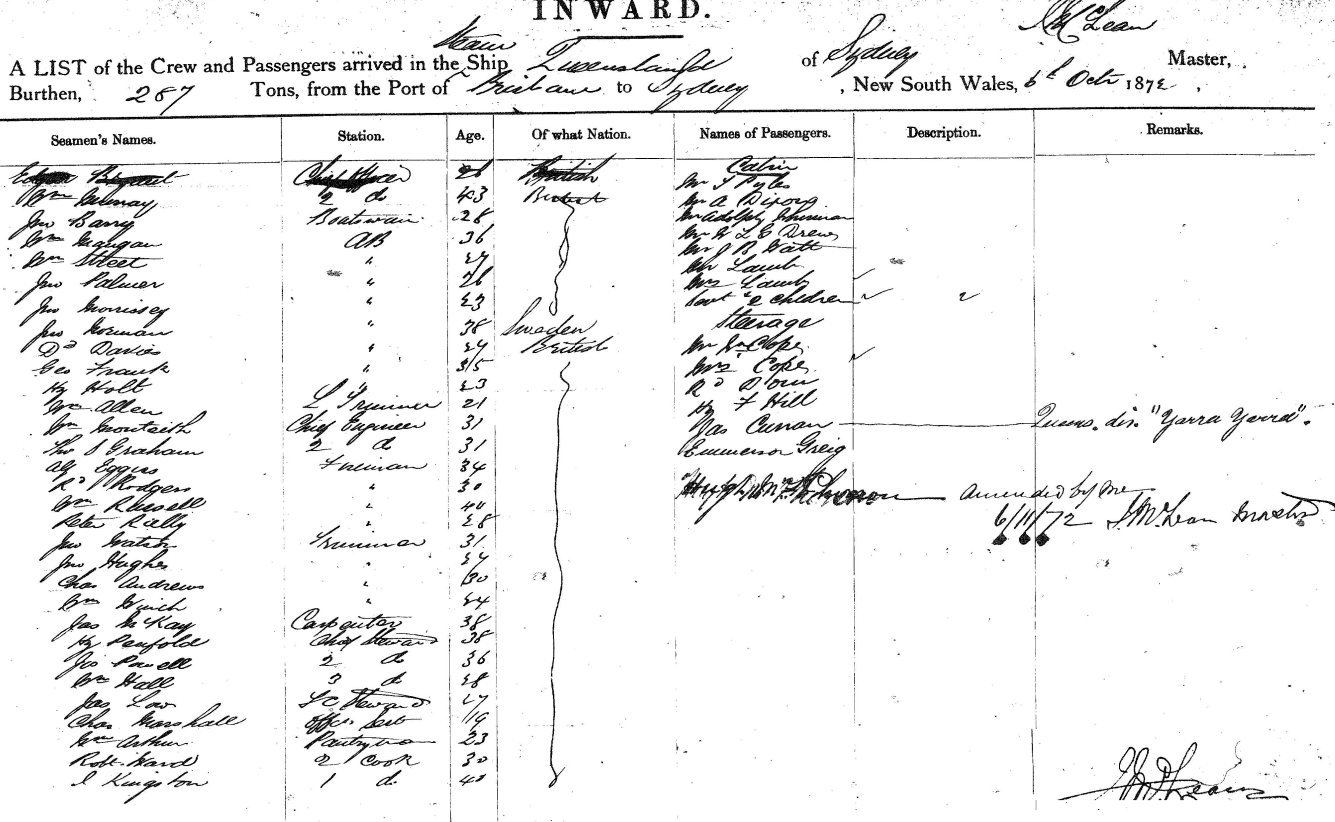 INWARD.
McLean
A LIST of the Crew and Passengers arrived in the Steam Ship Queensland of Sydney Master,
Burthen, 287 Tons, from the Port of Brisbane to Sydney, New South Wales, 6th Octr 1872,
Seamen's Names. Station. Age. Of what Nation. Names of Passengers. Description. Remarks.
Chief Officer 26 British Cabin
Wm 2 do 43 British Mr Pyles
Jno Barry Boatswain 28 Mr A Dixon
Wm Mangan AB 36 Mr Adolph
Wm Street " 27 Mr Drew
Jno Palmer " 26 Mr J B Watt
Jno Morrissey " 23 Mr Lamb
Mrs Lamb
2 children 2
Jno Norman " 38 Sweden Steerage
Dd Davies " 27 British Mr Wm Cope
Geo Frank " 35 Mrs Cope
Hy Holt " 23 Rd
Wm Allen L Trimmer 21 Hy F Hill
Wm Monteith Chief Engineer 31 Jas Curran "Yarra Yarra".
Tho S Graham 2 do 31 Emmerson Greig
Eggers Fireman 34
Rd Rodgers " 30 Hugh amended by me
Wm Russell " 40 6/11/72 McLean Master
Peter Rally " 28
Jno Watson Trimmer 31
Jno Hughes " 27
Chas Andrews " 30
Wm Winch " 24
Jas McKay Carpenter 38
Hy Penfold Chief Steward 38
Jos Powell 2 do 36
Wm Hall 3 do 28
Jas Low Steward 27
Chas Marshall 19
Wm Arthur Pantryman 23
Robt Ward 2 Cook 30
J Kingston 1 do 40
McLean